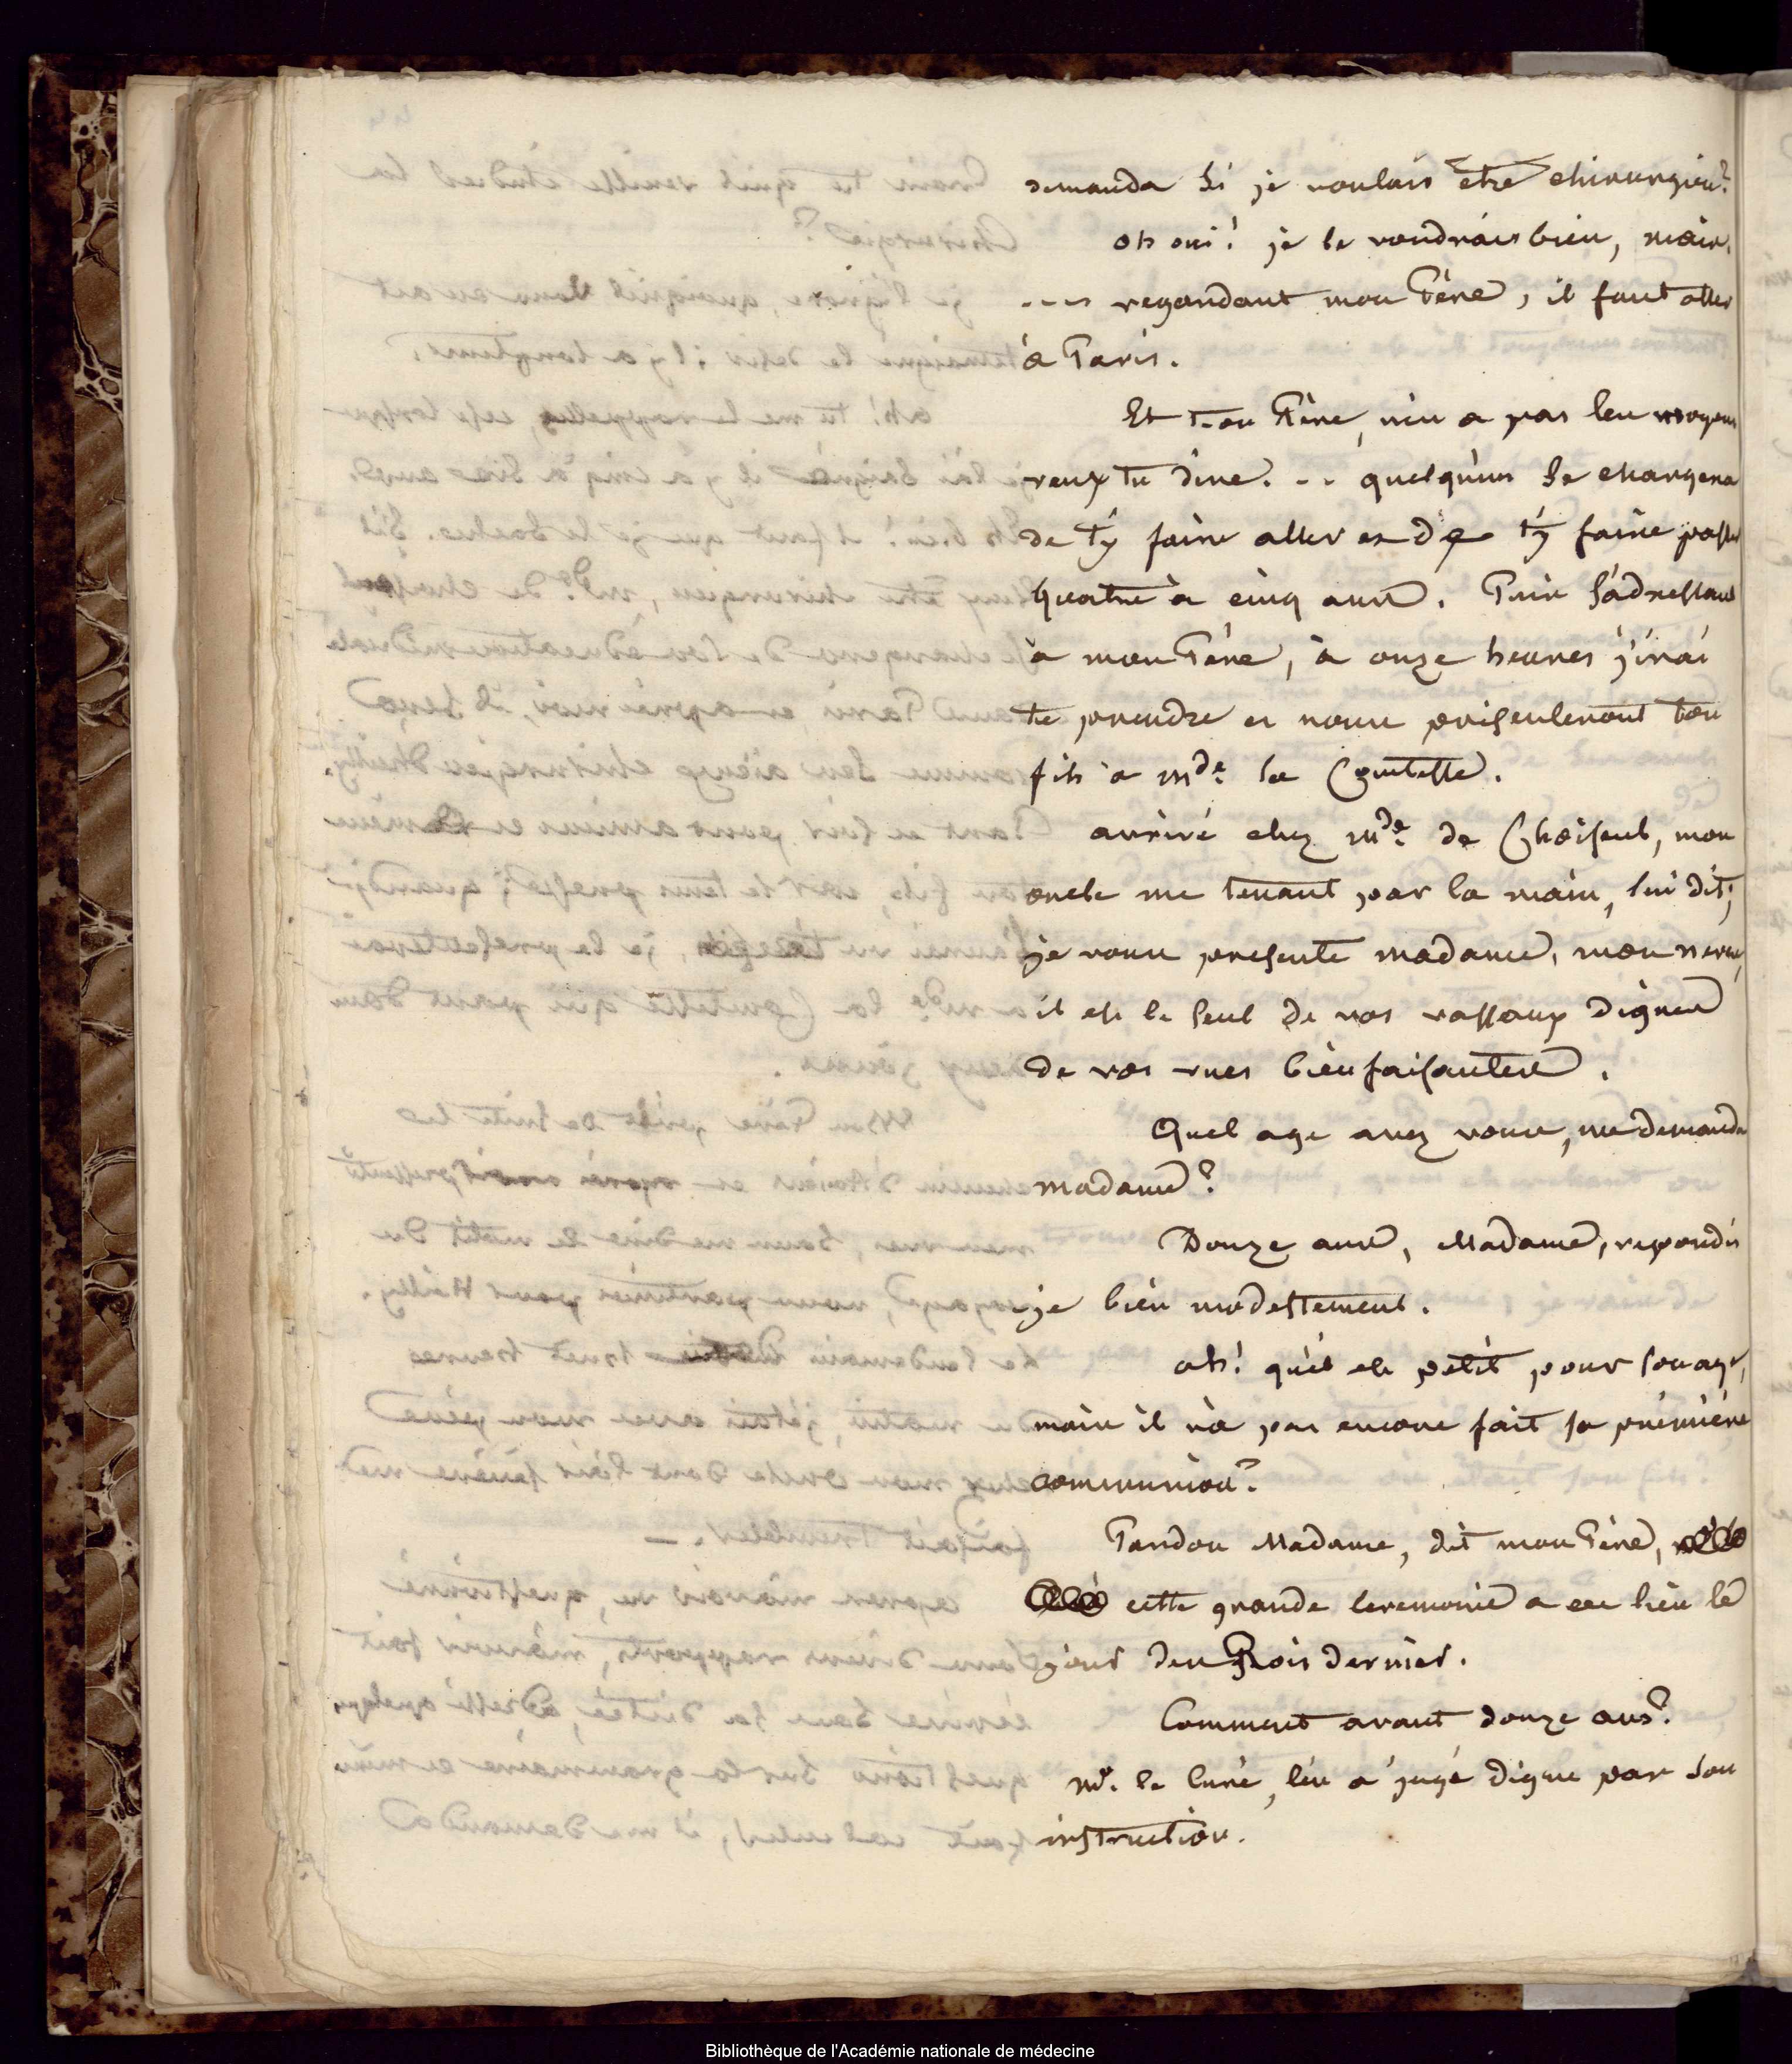 demanda si je voulais être chirurgien?
oh oui! je le voudrais bien, mais.
---- regardant mon Père, il faut aller
à Paris.
Et ton Père, n'en a pas les moyens
veux tu dire. -- quelqu'un se chargera
de t'y faire aller et de t'y faire passer
quatre à cinq ans. Puis s'adressant
à mon Père, à onze heures j'irai
te prendre et nous présenterons ton
fils à Mde. la Comtesse.
arrivé chez Mde. de Choiseul, mon
oncle me tenant par la main, lui dit;
je vous presente madame, mon neveu,
il est le seul de vos vassaux dignes
de vos vues bienfaisantes.
Quel age avez vous, me demanda
madame?
Douze ans, Madame, repondis
je bien modestement.
ah! qu'il est petit pour son age,
mais il n'a pas encore fait sa première
communion?
Pardon Madame, dit mon Père,
cette grande ceremonie a eu lieu le
jour des Rois dernier.
Comment avant douze ans?
Mr. le Curé, l'en a jugé digne par son
instruction.
Bibliothèque de l'Académie nationale de médecine